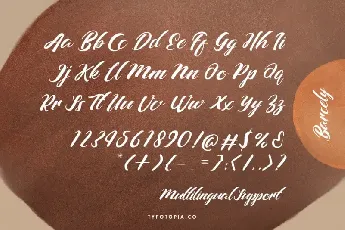 Aa Bb Cc Dd Ee Ff Gg Hh Ii
Jj Kk Ll Mm Nn Oo Pp Qq
Rr Ss Tt Uu Vv Ww Xx Yy Zz
1234561890!@#$%&
*(+){- =?:<;.,>?
Multilingual Support
Barcely
TYPOTOPIA.CO